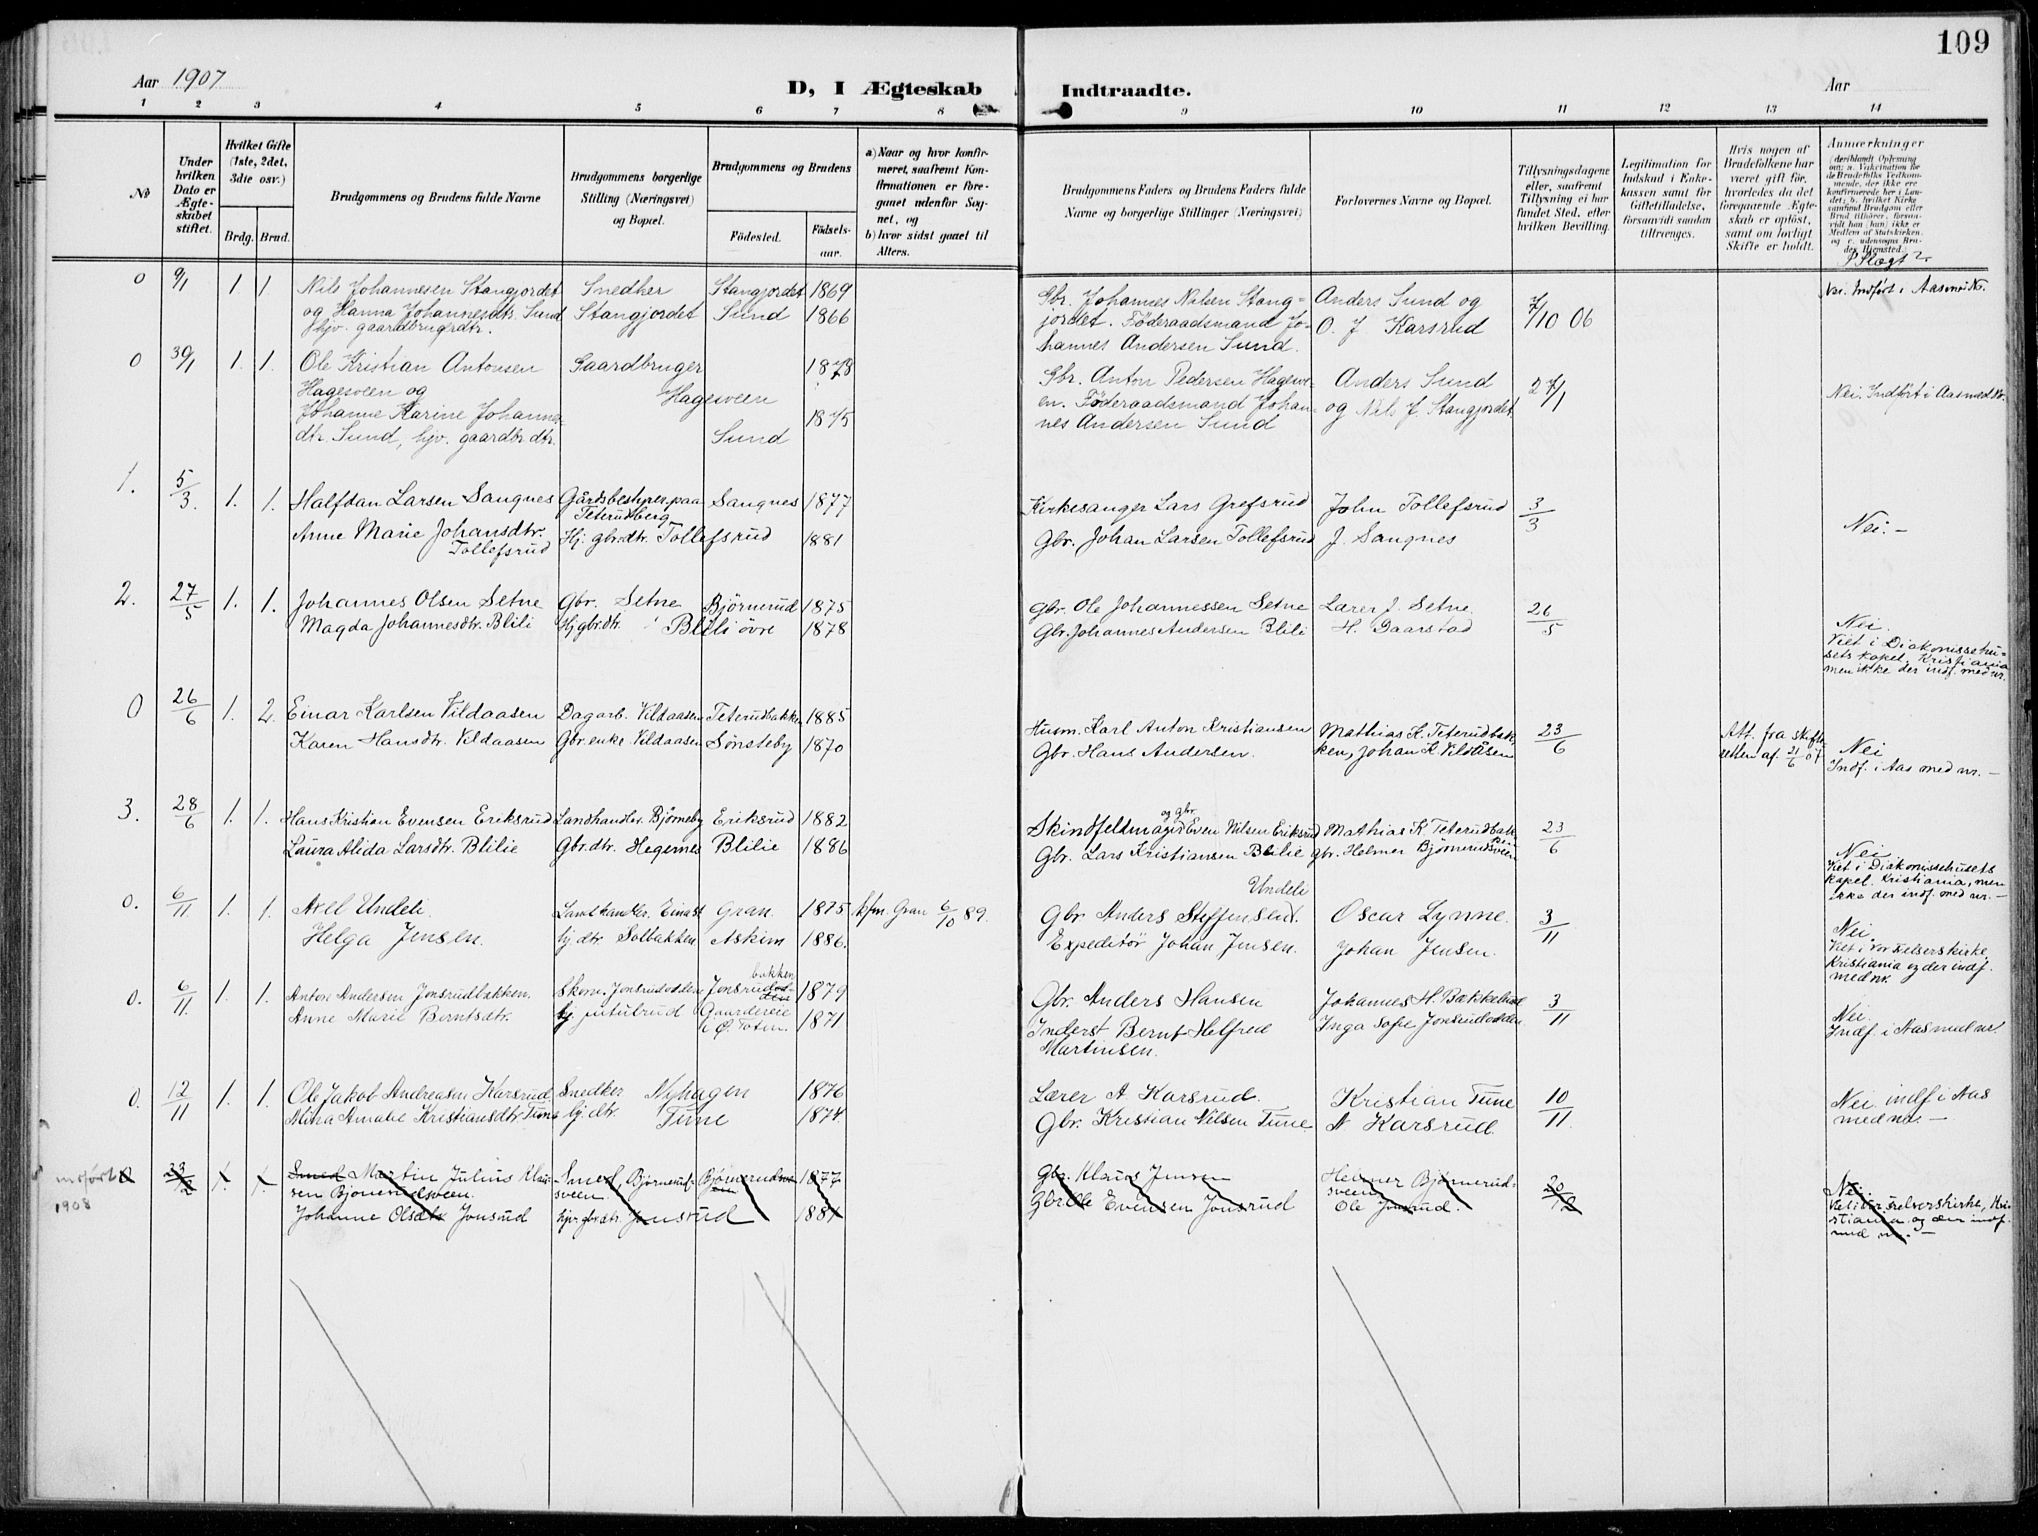 109
Aar 1907
D, I Ægteskab Indtraadte.
Aar
1 2 3 4 5 6 7 8 9 10 11 12 13 14
No
Under hvilken Dato er Ægteskabet stiftet.
Hvilket Gifte (1ste, 2det, 3die osv.)
Brdg. Brud.
Brudgommens og Brudens fulde Navne
Brudgommens borgerlige Stilling (Næringsvei) og Bopæl.
Brudgommens og Brudens
Fødested. Fødselsaar.
a) Naar og hvor konfirmeret, saafremt Konfirmationen er foregaaet udenfor Sognet, og
b) hvor sidst gaaet til Alters.
Brudgommens Faders og Brudens Faders fulde Navne og borgerlige Stillinger (Næringsvei)
Forlovernes Navne og Bopæl.
Tillysningsdagene eller, saafremt Tillysning ei har fundet Sted, efter hvilken Bevilling.
Legitimation for Indskud i Enkekassen samt for Giftetilladelse, forsaavidt saadan tiltrænges.
Hvis nogen af Brudefolkene har været gift før, hvorledes da det foregaaende Ægteskab er opløst, samt om lovligt Skifte er holdt.
Anmerkninger
(deriblandt Oplysning om: a. Vaccination for de Brudefolks Vedkommende, der ikke ere konfirmerede her i Landet; b. hvilket Kirkesamfund Brudgom eller Brud tilhører, forsaavidt han (hun) ikke er Medlem af Statskirken, og c. udensogns Brudes Hjemsted.)
I Slægt?
0 9/1 1 1. Nils Johannesen Stangjordet Snedker Stangjordet 1869
og Hanna Johannesdtr. Sund Stangjordet Sund 1866
hjv. gaardbrugerdtr.
Gbr. Johannes Nilsen Stang-
jordet. Föderaadsmand Jo-
hannes Andersen Sund.
Anders Sund og
O. J. Karsrud
7/10 06
Nei. Indført i Aas med Nr.
0 30/1 1. 1. Ole Kristian Antonsen Gaardbruger 1878
Hagesveen og Hagesveen
Johanne Karine Johannes- 1875
dtr. Sund, hjv. gaardbr.dtr. Sund
Gbr. Anton Pedersen Hagesve-
en. Föderaadsmand Johan-
nes Andersen Sund
Anders Sund
og Nils J. Stangjordet
27/1
Nei. Indført i Aas med Nr.
1. 5/3. 1. 1. Halfdan Larsen Sangnes Gårdsbestyrer paa Sangnes 1877
Teterudberg
Anne Marie Johansdtr. Hj. gbr.dtr. Tollefsrud 1881
Tollefsrud
Kirkesanger Lars Grefsrud John Tollefsrud
Gbr. Johan Larsen Tollefsrud J. Sangnes
3/3
Nei:-
2. 27/5 1. 1. Johannes Olsen Setne Gbr. Setne Bjørnerud 1875
Magda Johannesdtr. Blili Hj gbr.dtr. Blili øvre 1878
Gbr. Ole Johannessen Setne Lærer J. Setne.
Gbr. Johannes Andersen Blili H. Gaarstad
26/5
Nei.
Viet i Diakonissehu-
sets kapel, Kristiania
men ikke der indf. med nr.
0 26/6 1. 2. Einar Karlsen Vildaasen Dagarb. Vildaasen Teterudbakken 1885
Karen Hansdtr. Vildaasen Gbr.enke Vildaasen Sønsteby 1870
Husm. Karl Anton Kristiansen Mathias K. Teterudbak-
Gbr. Hans Andersen. ken, Johan K. Vildåsen
23/6
Att. fra skifte-
retten af 21/6 07
Nei
Indf. i Aas med nr. -
3. 28/6 1. 1. Hans Kristian Evensen Eriksrud Landhandler Bjørneby Eriksrud 1882
Laura Alida Larsdtr. Blilie Gbr.dtr. Hegernes Blilie 1886
og gbr.
Skindfeldmager Even Nilsen Eriksrud Mathias K. Teterudbak-
Gbr. Lars Kristiansen Blilie gbr. Helmer Bjørnerudsveen
23/6
Nei
Viet i Diakonissehusets
kapel, Kristiania, men
ikke der indf. med nr. -
0. 6/11 1. 1. Axel Undeli. Landhandler. Eina st Gran. 1875 kfm. Gran 6/10 89.
Helga Jensen. hj. dtr. Solbakken Askim 1886.
Undeli
Gbr Anders Steffensen. Oscar Lynne.
Expeditør Johan Jensen. Johan Jensen.
3/11
Nei.
Viet i Vor Frelsers kirke,
Kristiania og der indf.
med nr.
0. 6/11. 1. 1. Anton Andersen Jonsrudbakken. Skom. Jonsrudodden Jonsrudbakken 1879
Anne Marie Berntsdtr. hj. Gaardereie 1871
i Ø. Toten.
Gbr. Anders Hansen Johannes H. Bækkelund
Inderst Bernt Helfred Inga Sofie Jonsrudodden
Martinsen.
3/11
Nei.
Indf. i Aas med nr.
0. 12/11 1. 1. Ole Jakob Andreasen Karsrud. Snedker Nyhagen 1876
Mina Amalie Kristiansdtr. Tune hj. dtr. Tune 1874.
Lærer A. Karsrud. Kristian Tune
Gbr. Kristian Nilsen Tune. A. Karsrud.
10/11.
Nei. indf i Aas
med nr. -
indført 1908
23/12 1. 1. Smed Martin Julius Klau- Smed, Bjørnerud- Bjørnerudsveen 1877
sen Bjørnerudsveen. sveen.
Johanne Olsdtr. Jonsrud hjv. gbrdtr. Jonsrud 1881
Gbr. Klaus Jensen Helmer Bjørnerud-
sveen
Gbr Ole Evensen Jonsrud Ole Jonsrud.
20/12
Nei.
Viet i Vor Frelsers kirke, Kri-
stiania og der indf.
med nr. -